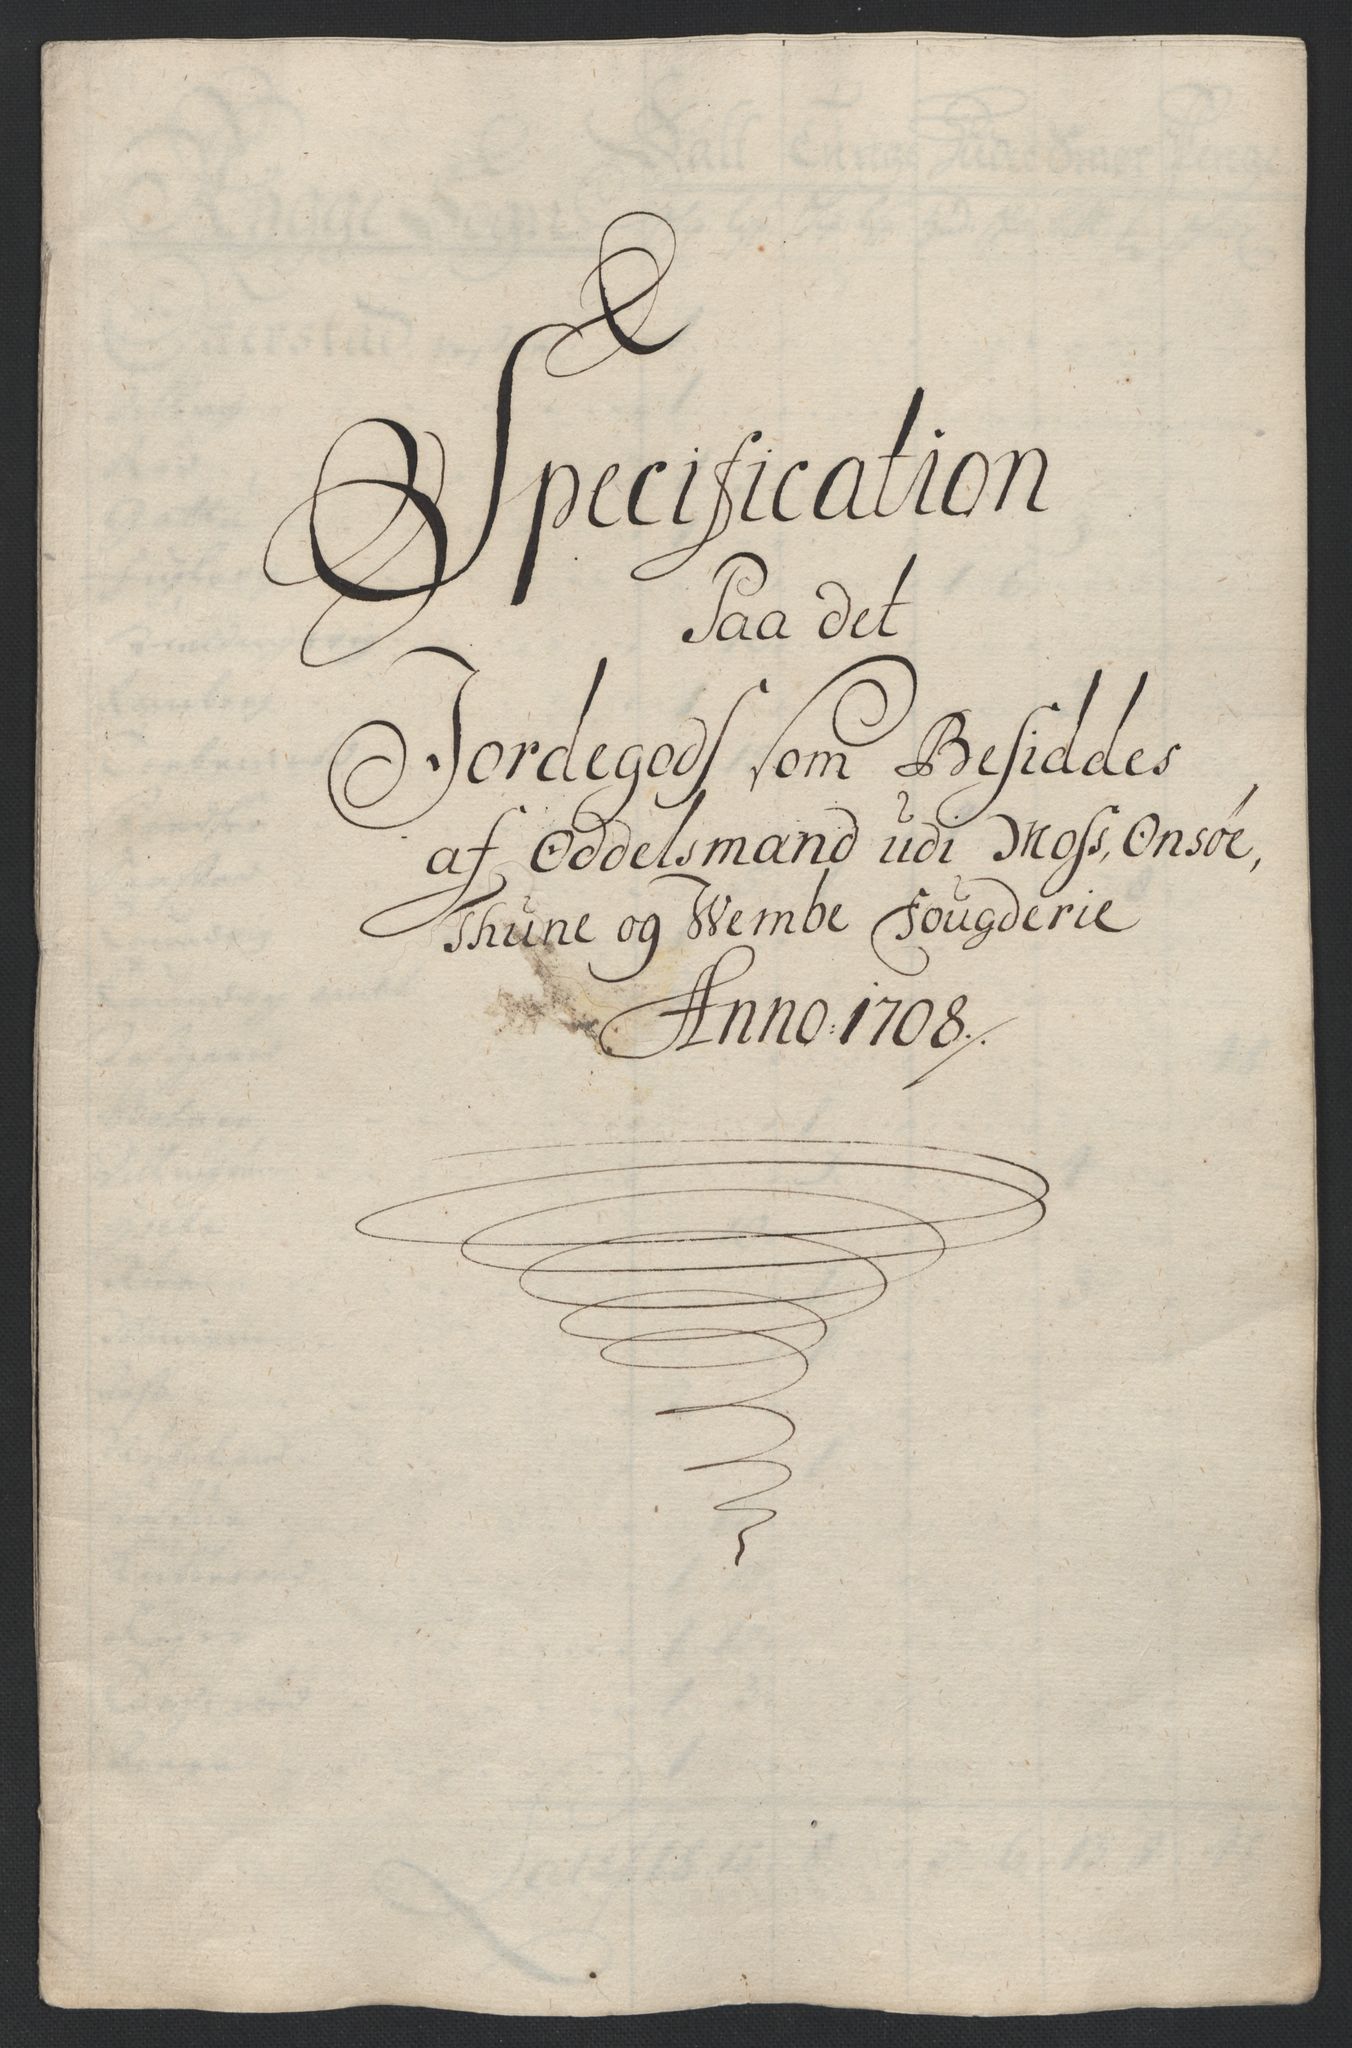 Specification
Paa det
Jordegods som Besiddes
af Oddelsmand udi Moss, Onsøe,
Thune og Wembe Fougderie
Anno: 1708.